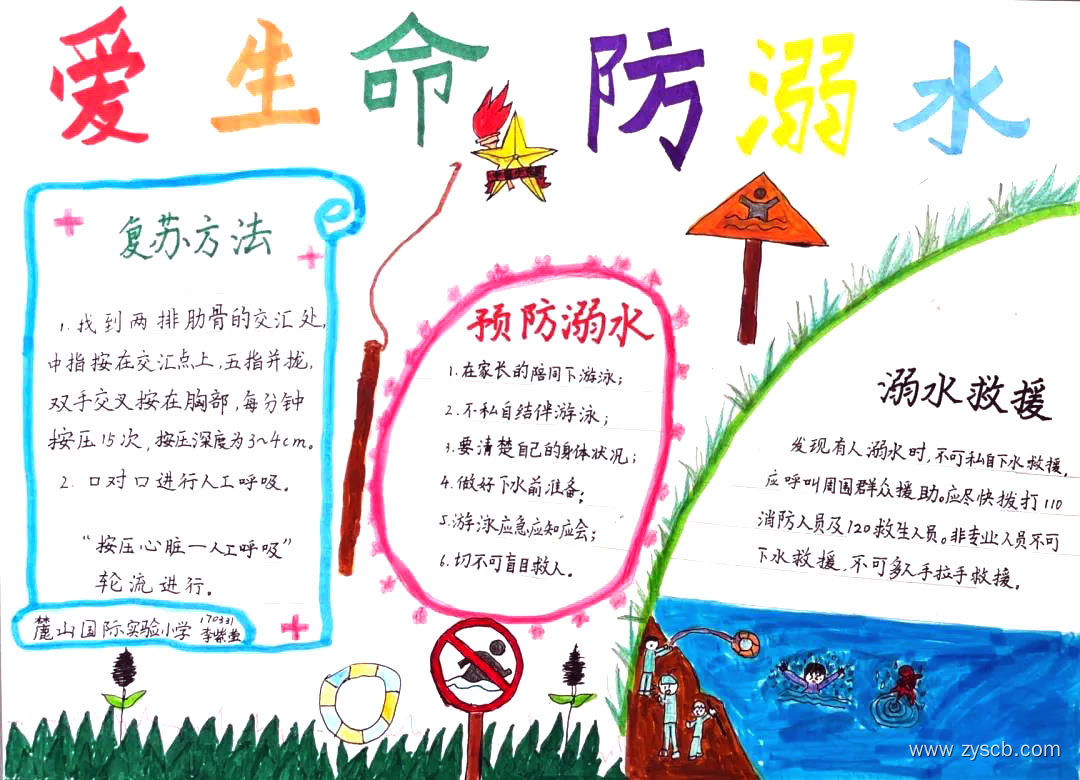 爱生命防溺水
复苏方法
1.找到两排肋骨的交汇处,
中指按在交汇点上,五指并拢,
双手交叉按在胸部,每分钟
按压15次,按压深度为3~4cm。
2.口对口进行人工呼吸。
“按压心脏—人工呼吸”
轮流进行。
麓山国际实验小学
170331
预防溺水
1.在家长的陪同下游泳;
2.不私自结伴游泳;
3.要清楚自己的身体状况;
4.做好下水前准备;
5.游泳应急应知应会;
6.切不可盲目救人。
溺水救援
发现有人溺水时,不可私自下水救援,
应呼叫周围群众援助。应尽快拨打110
消防人员及120救生人员。非专业人员不可
下水救援,不可多人手拉手救援。
www.zyscb.com